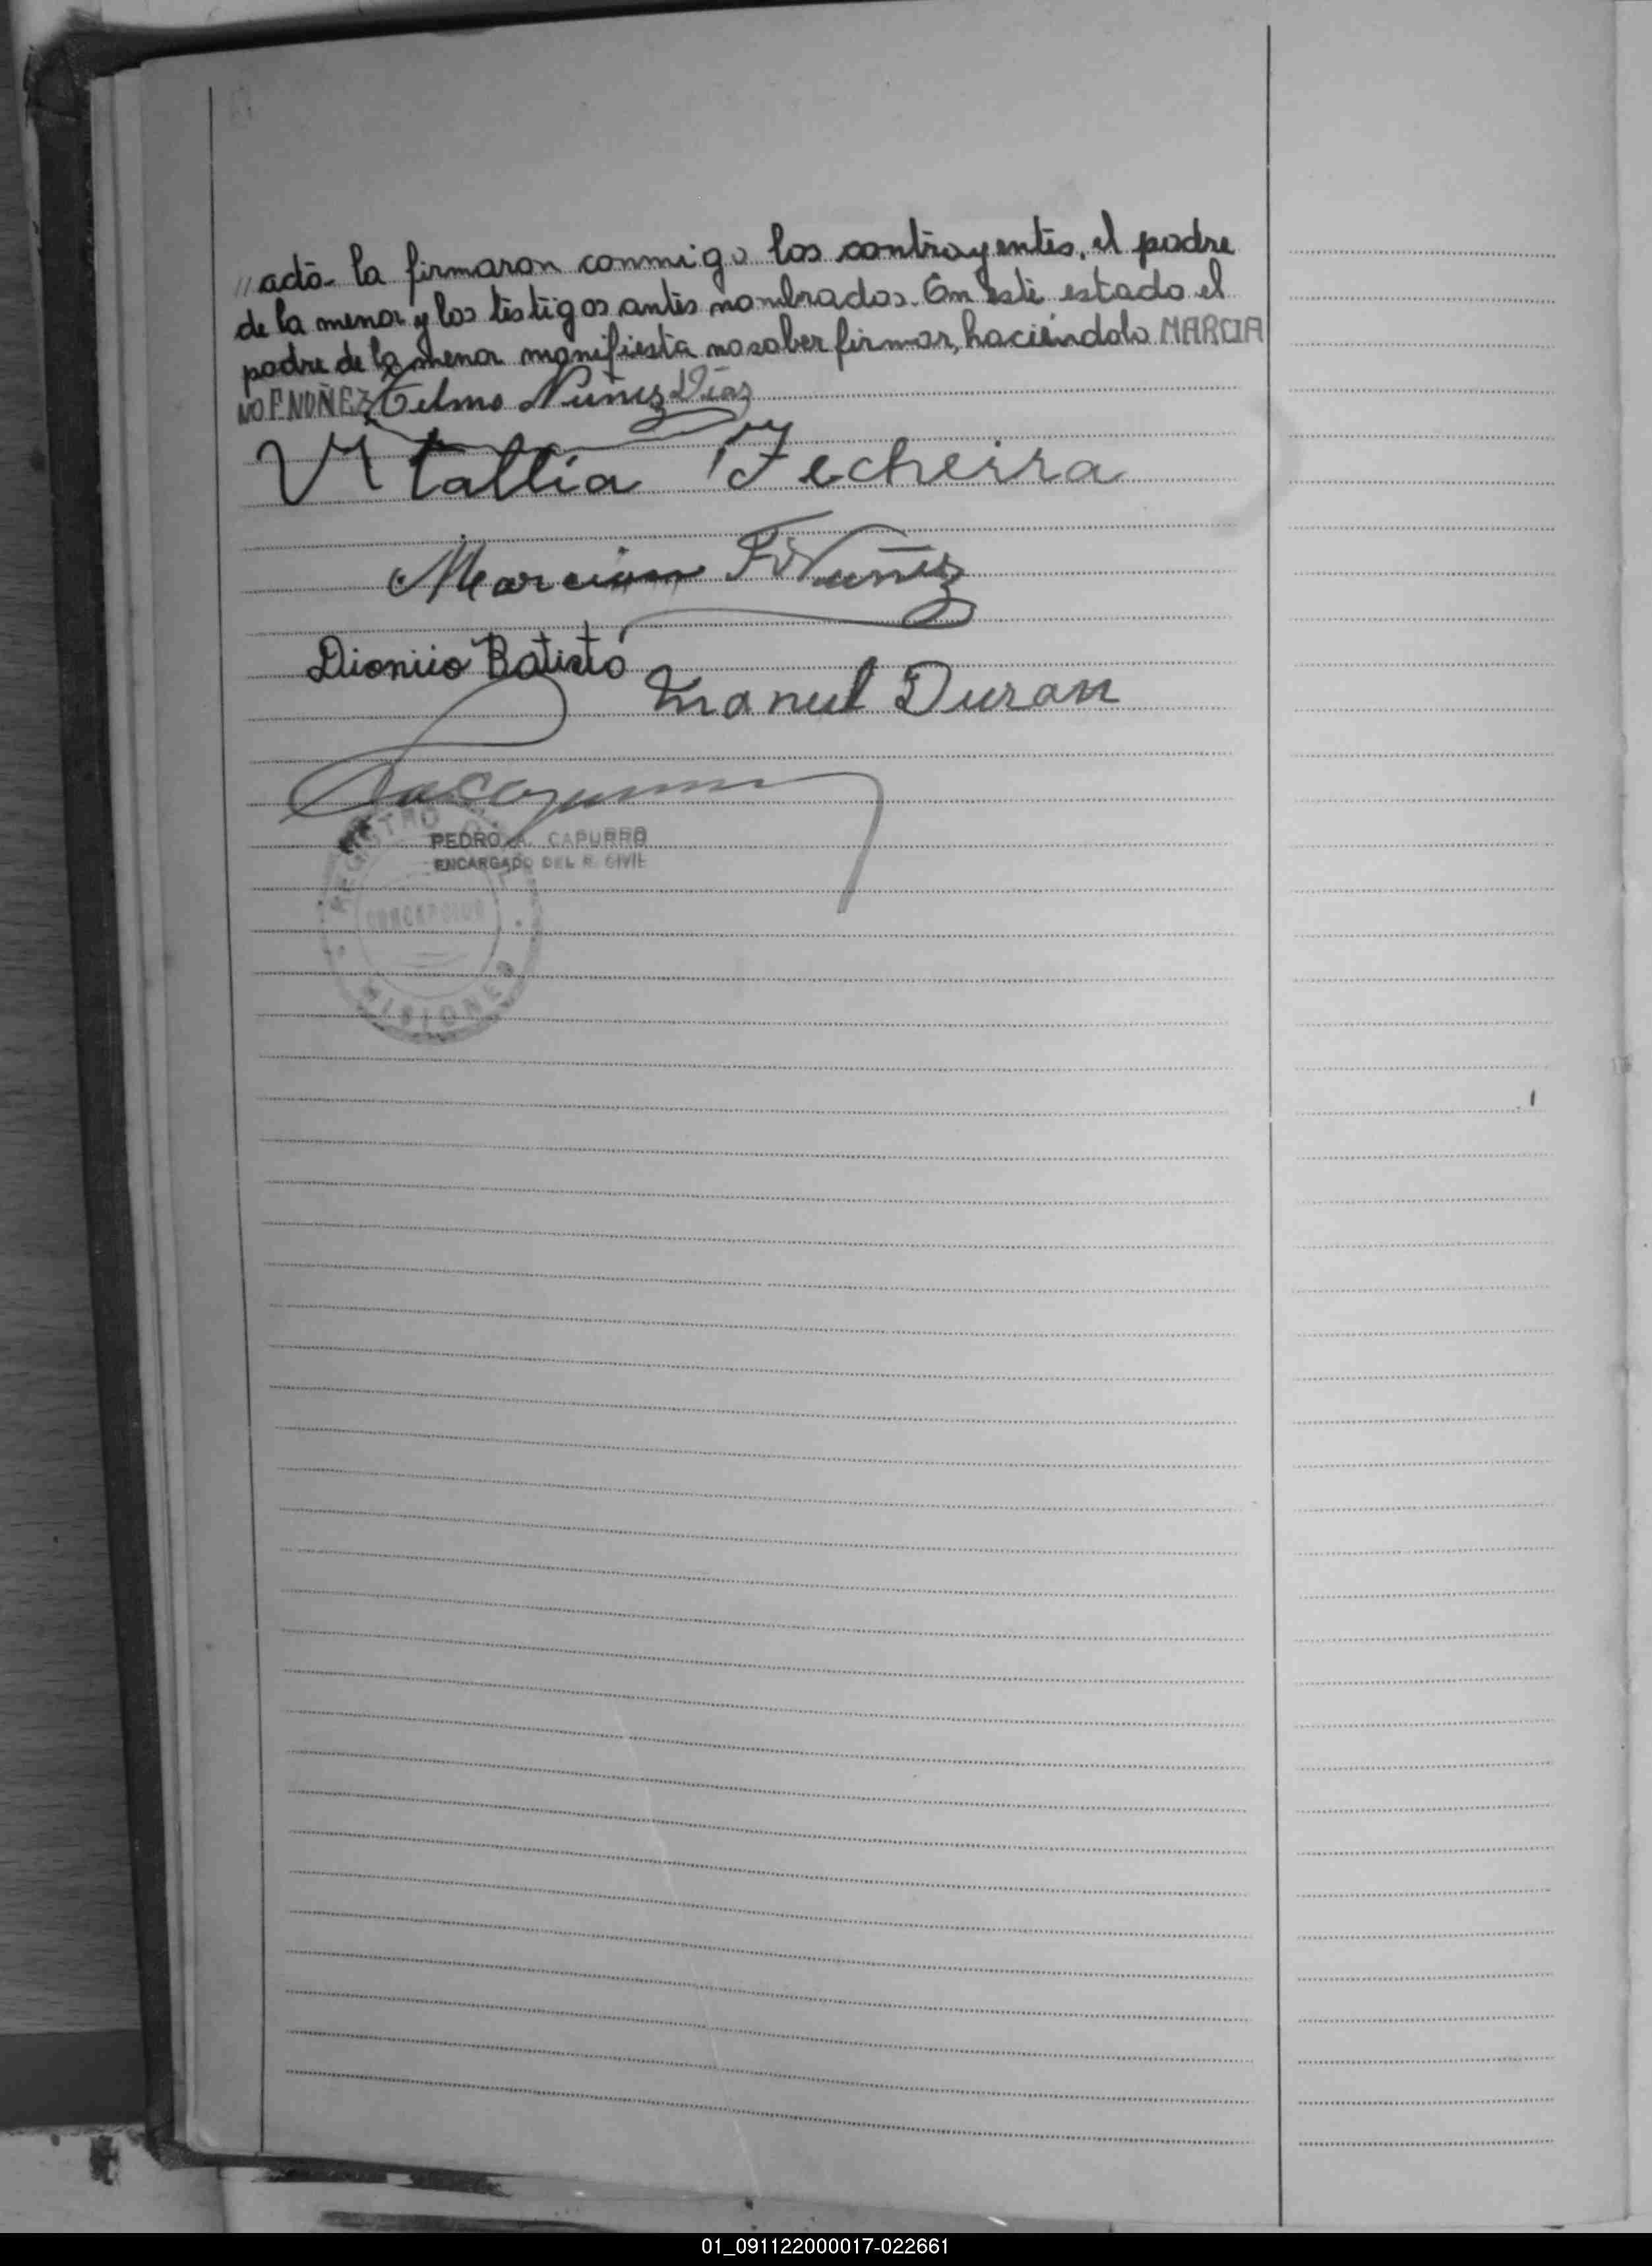 "acta- la firmaron conmigo los contrayentes, el padre
de la menor y los testigos antes nombrados. En este estado el
padre de la menor manifiesta no saber firmar, haciéndolo MARCIA
NO F. NUÑEZ Telmo Nuñez Díaz
Vitallia Techeirra
Marciano F. Nuñez
Dionicio Batista
Manuel Duran
PEDRO A. CAPURRO
ENCARGADO DEL R. CIVIL
REGISTRO CIVIL
CONCEPCION
MISIONES
01_091122000017-022661